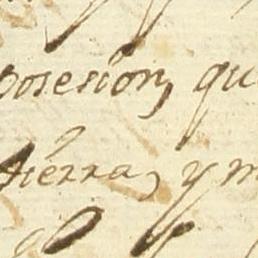 posesion, qu
tierra, y m